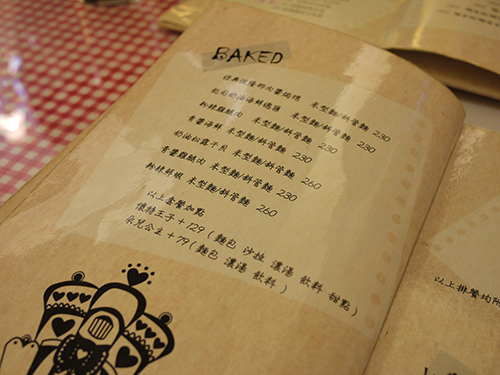 BAKED
經典波隆那肉醬焗烤 米型麵/斜管麵 230
起司奶油海鮮總匯 米型麵/斜管麵 230
粉辣雞腿肉 米型麵/斜管麵 230
青醬海鮮 米型麵/斜管麵 230
奶油松露干貝 米型麵/斜管麵 260
青醬雞腿肉 米型麵/斜管麵 230
粉辣鮮蝦 米型麵/斜管麵 260
以上套餐加點
懷特王子+129 (麵包 沙拉 濃湯 飲料 甜點)
朵兒公主+79 (麵包 濃湯 飲料)
以上排餐均附